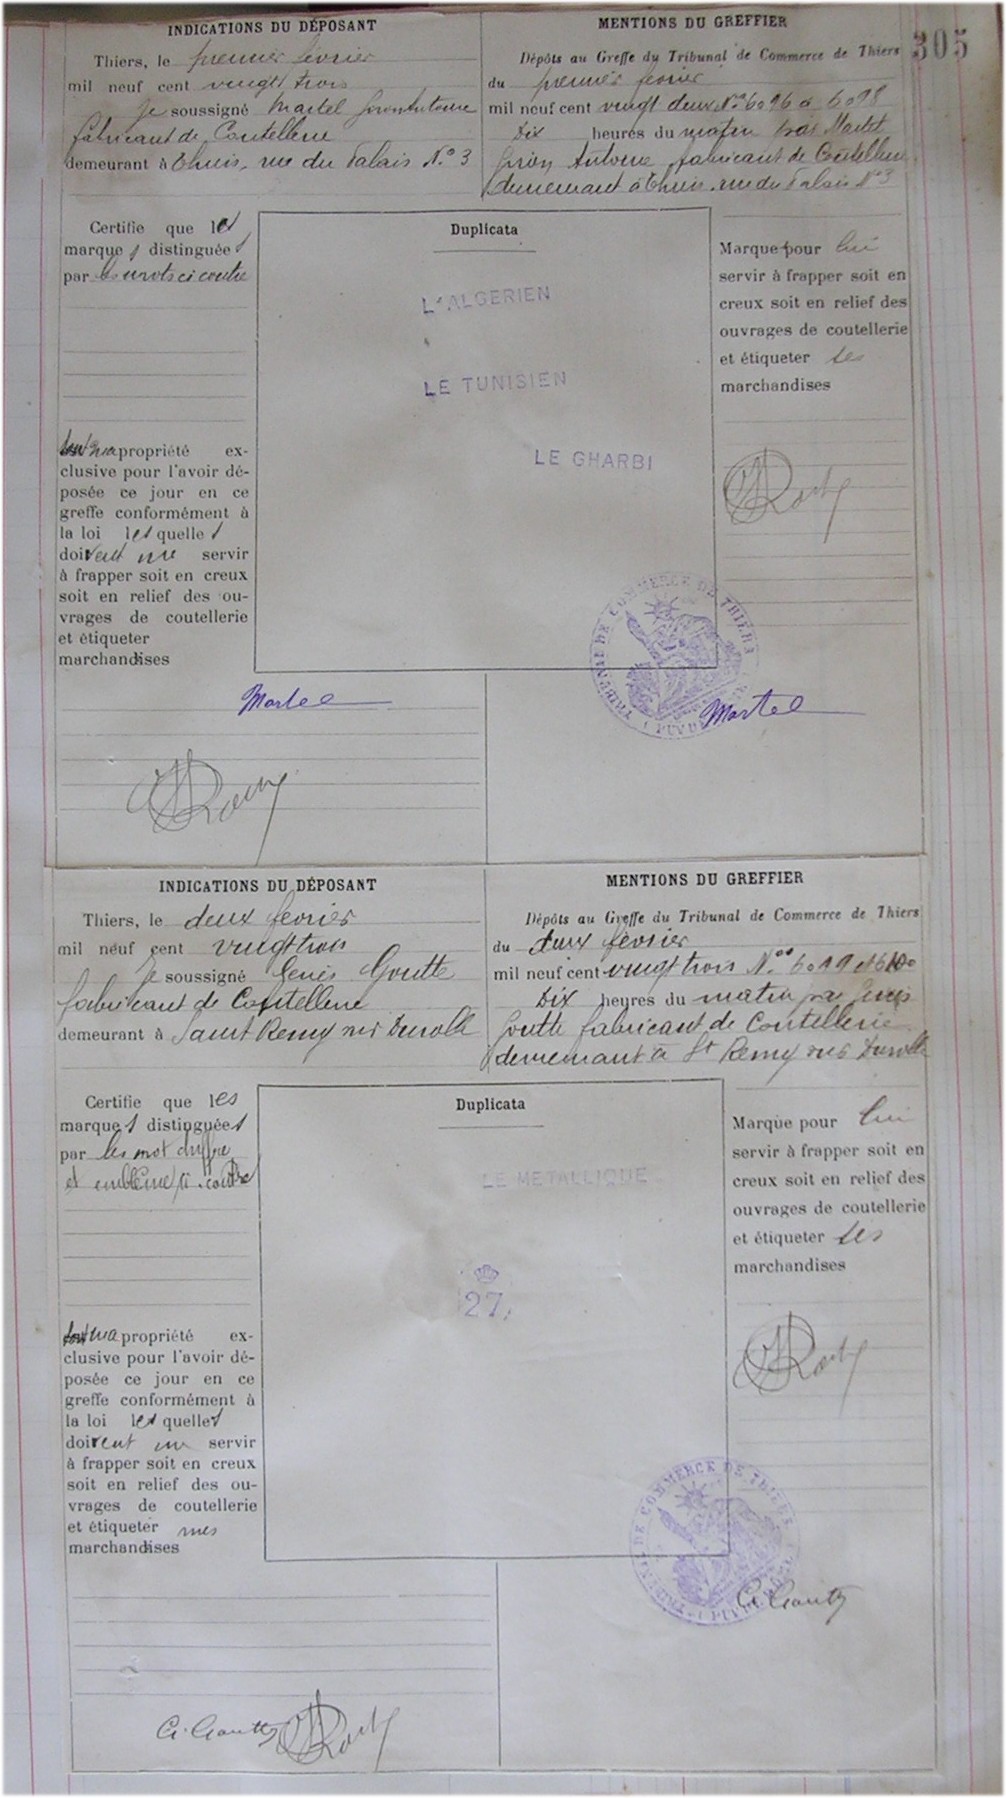 305
INDICATIONS DU DÉPOSANT
Thiers, le premier février
mil neuf cent vingt trois
Je soussigné Martel
fabricant de Coutellerie
demeurant à Thiers, rue du Palais N° 3
MENTIONS DU GREFFIER
Dépôts au Greffe du Tribunal de Commerce de Thiers
du premier février
mil neuf cent vingt deux Nos 6096 à 6098
Dix heures du matin par Martel
Antoine fabricant de Coutellerie
demeurant à Thiers, rue du Palais N° 3
Certifie que les
marques distinguées
par les mots ci contre
sont ma propriété ex-
clusive pour l'avoir dé-
posée ce jour en ce
greffe conformément à
la loi lesquelles
doivent me servir
à frapper soit en creux
soit en relief des ou-
vrages de coutellerie
et étiqueter
marchandises
Duplicata
L'ALGERIEN
LE TUNISIEN
LE GHARBI
Marque pour lui
servir à frapper soit en
creux soit en relief des
ouvrages de coutellerie
et étiqueter ses
marchandises
TRIBUNAL DE COMMERCE DE THIERS
Martel
Martel
INDICATIONS DU DÉPOSANT
Thiers, le deux février
mil neuf cent vingt trois
Je soussigné Genès Goutte
fabricant de Coutellerie
demeurant à Saint Remy sur Durolle
MENTIONS DU GREFFIER
Dépôts au Greffe du Tribunal de Commerce de Thiers
du deux février
mil neuf cent vingt trois Nos 6099 et 6100
Dix heures du matin par Genès
Goutte fabricant de Coutellerie
demeurant à St Remy sur Durolle
Certifie que les
marques distinguées
par les mot chiffre
et emblème ci-contre
sont ma propriété ex-
clusive pour l'avoir dé-
posée ce jour en ce
greffe conformément à
la loi lesquelles
doivent me servir
à frapper soit en creux
soit en relief des ou-
vrages de coutellerie
et étiqueter mes
marchandises
Duplicata
LE METALLIQUE
27
Marque pour lui
servir à frapper soit en
creux soit en relief des
ouvrages de coutellerie
et étiqueter ses
marchandises
TRIBUNAL DE COMMERCE DE THIERS
G. Goutte
G. Goutte